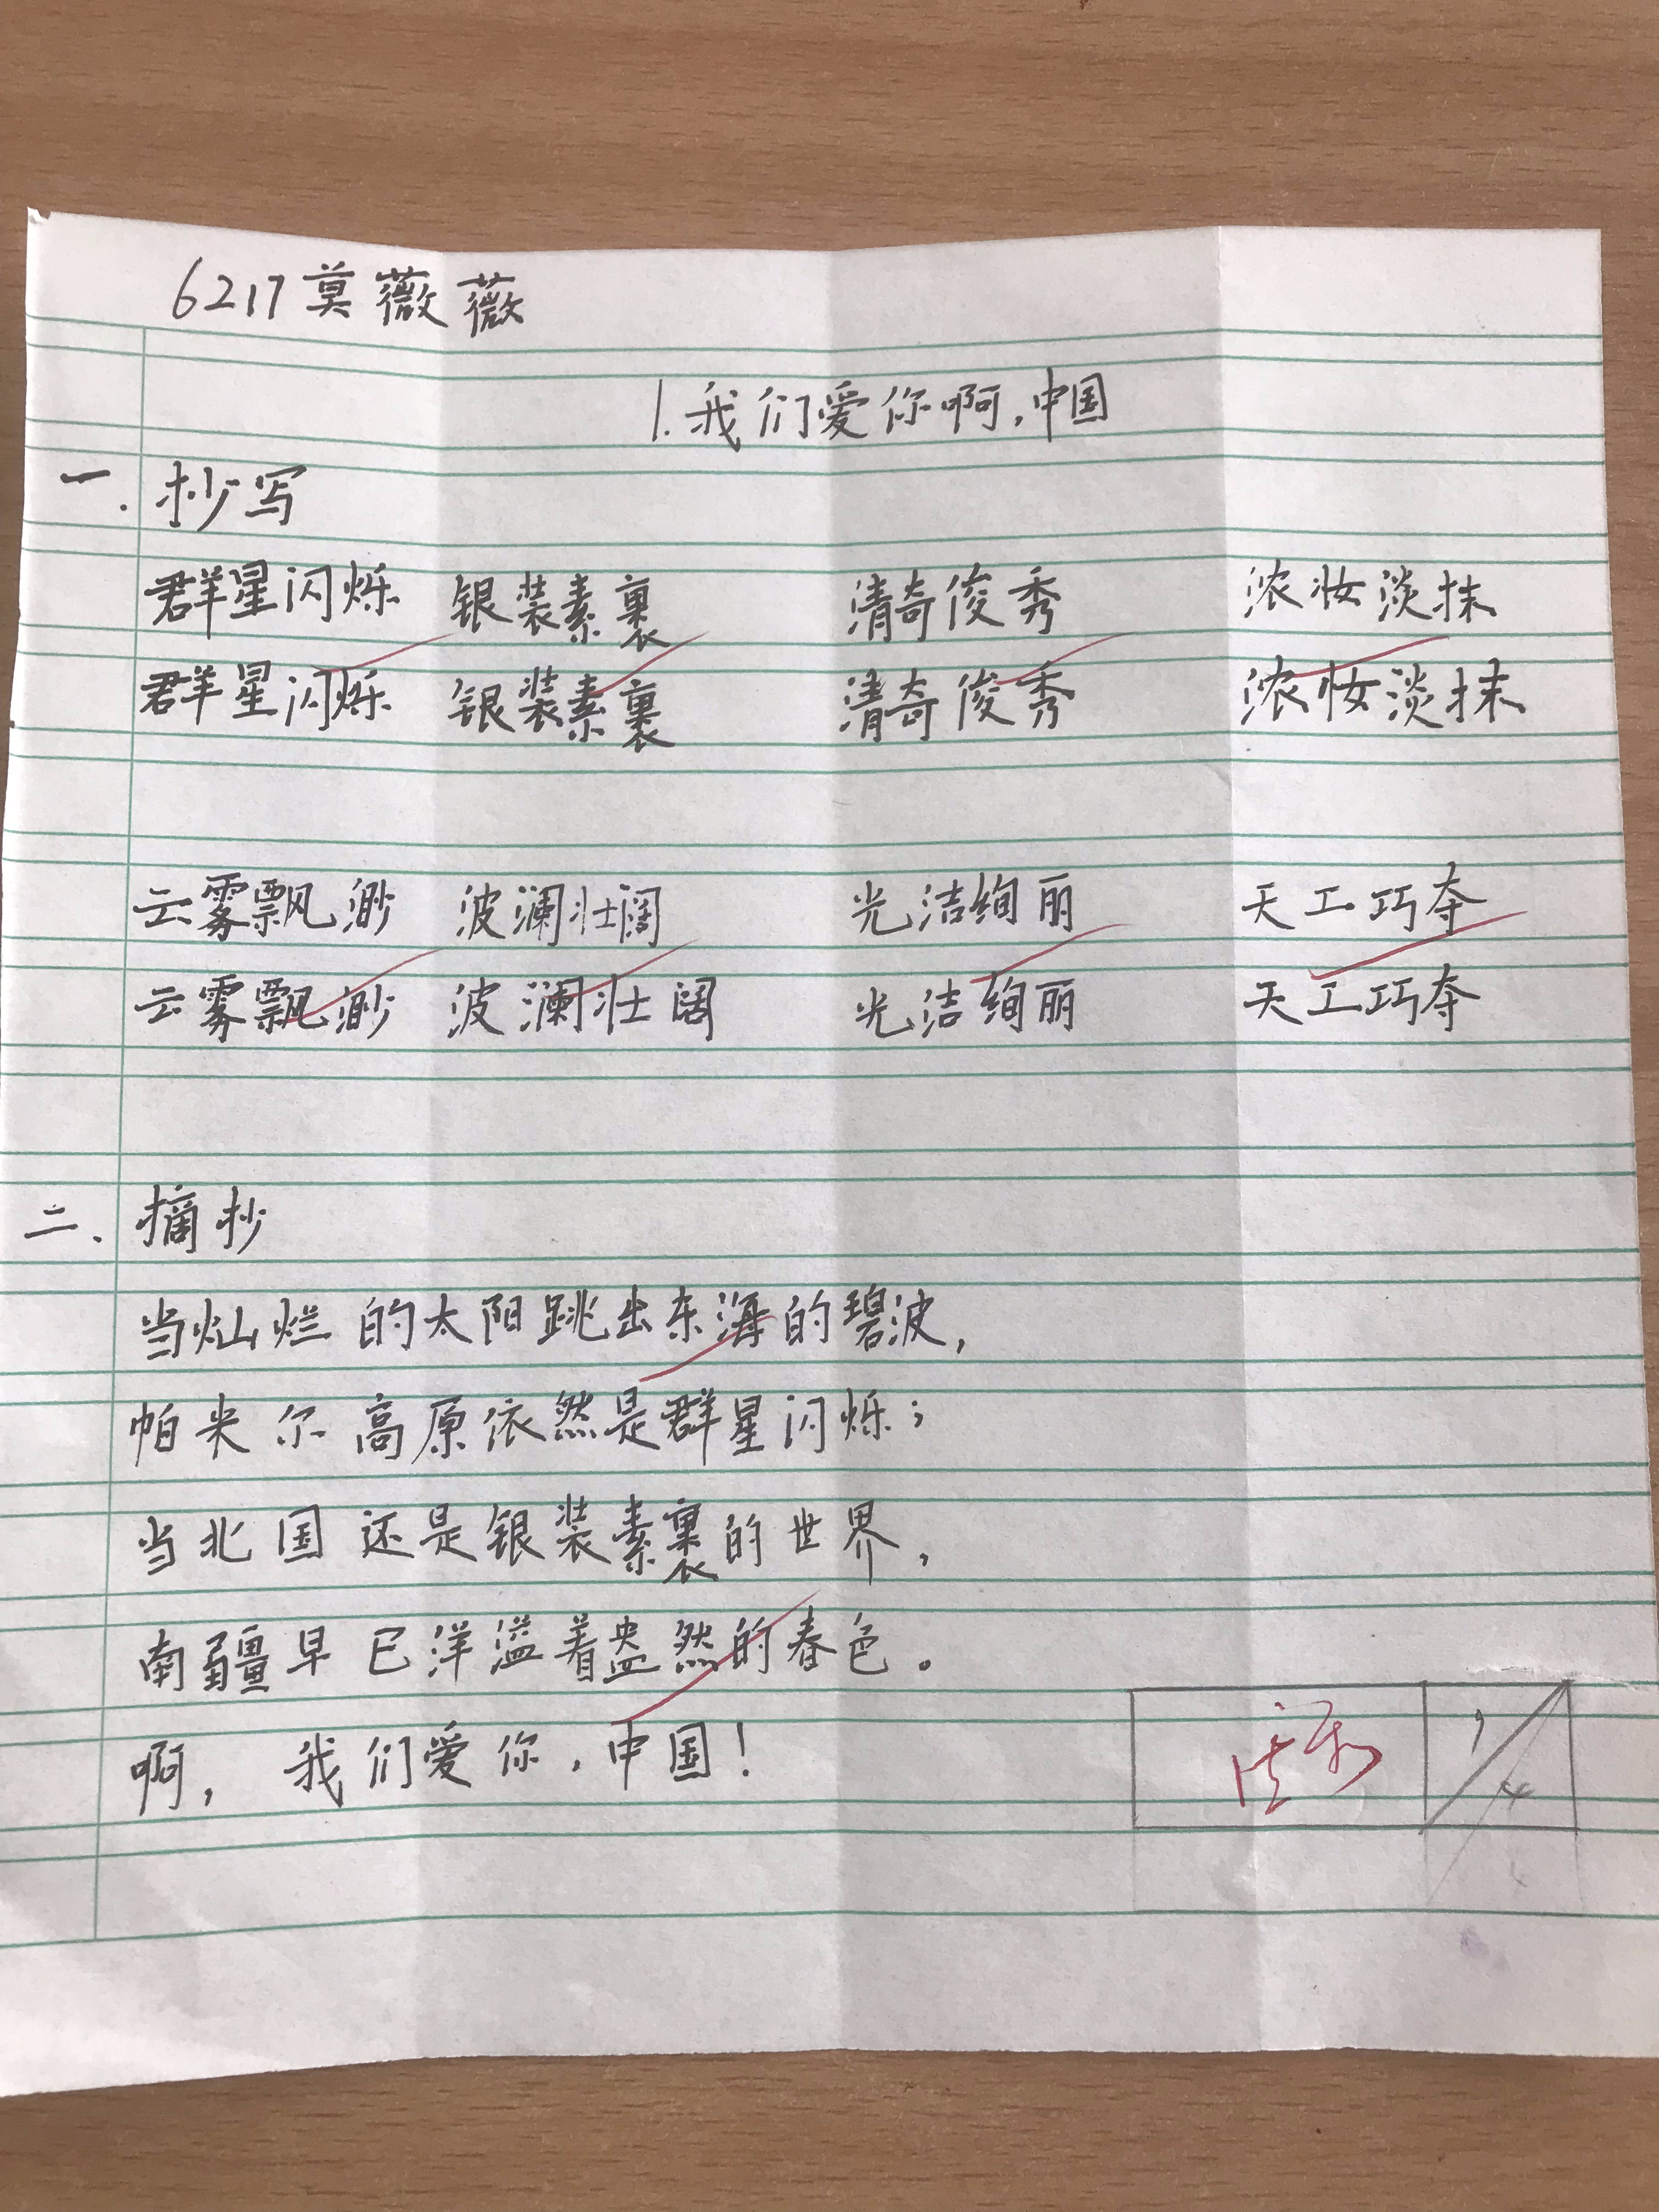 6217莫薇薇
1.我们爱你啊,中国
一.抄写
群星闪烁 银装素裹 清奇俊秀 浓妆淡抹
群星闪烁 银装素裹 清奇俊秀 浓妆淡抹
云雾飘渺 波澜壮阔 光洁绚丽 天工巧夺
云雾飘渺 波澜壮阔 光洁绚丽 天工巧夺
二.摘抄
当灿烂的太阳跳出东海的碧波,
帕米尔高原依然是群星闪烁;
当北国还是银装素裹的世界,
南疆早已洋溢着盎然的春色。
啊,我们爱你,中国!